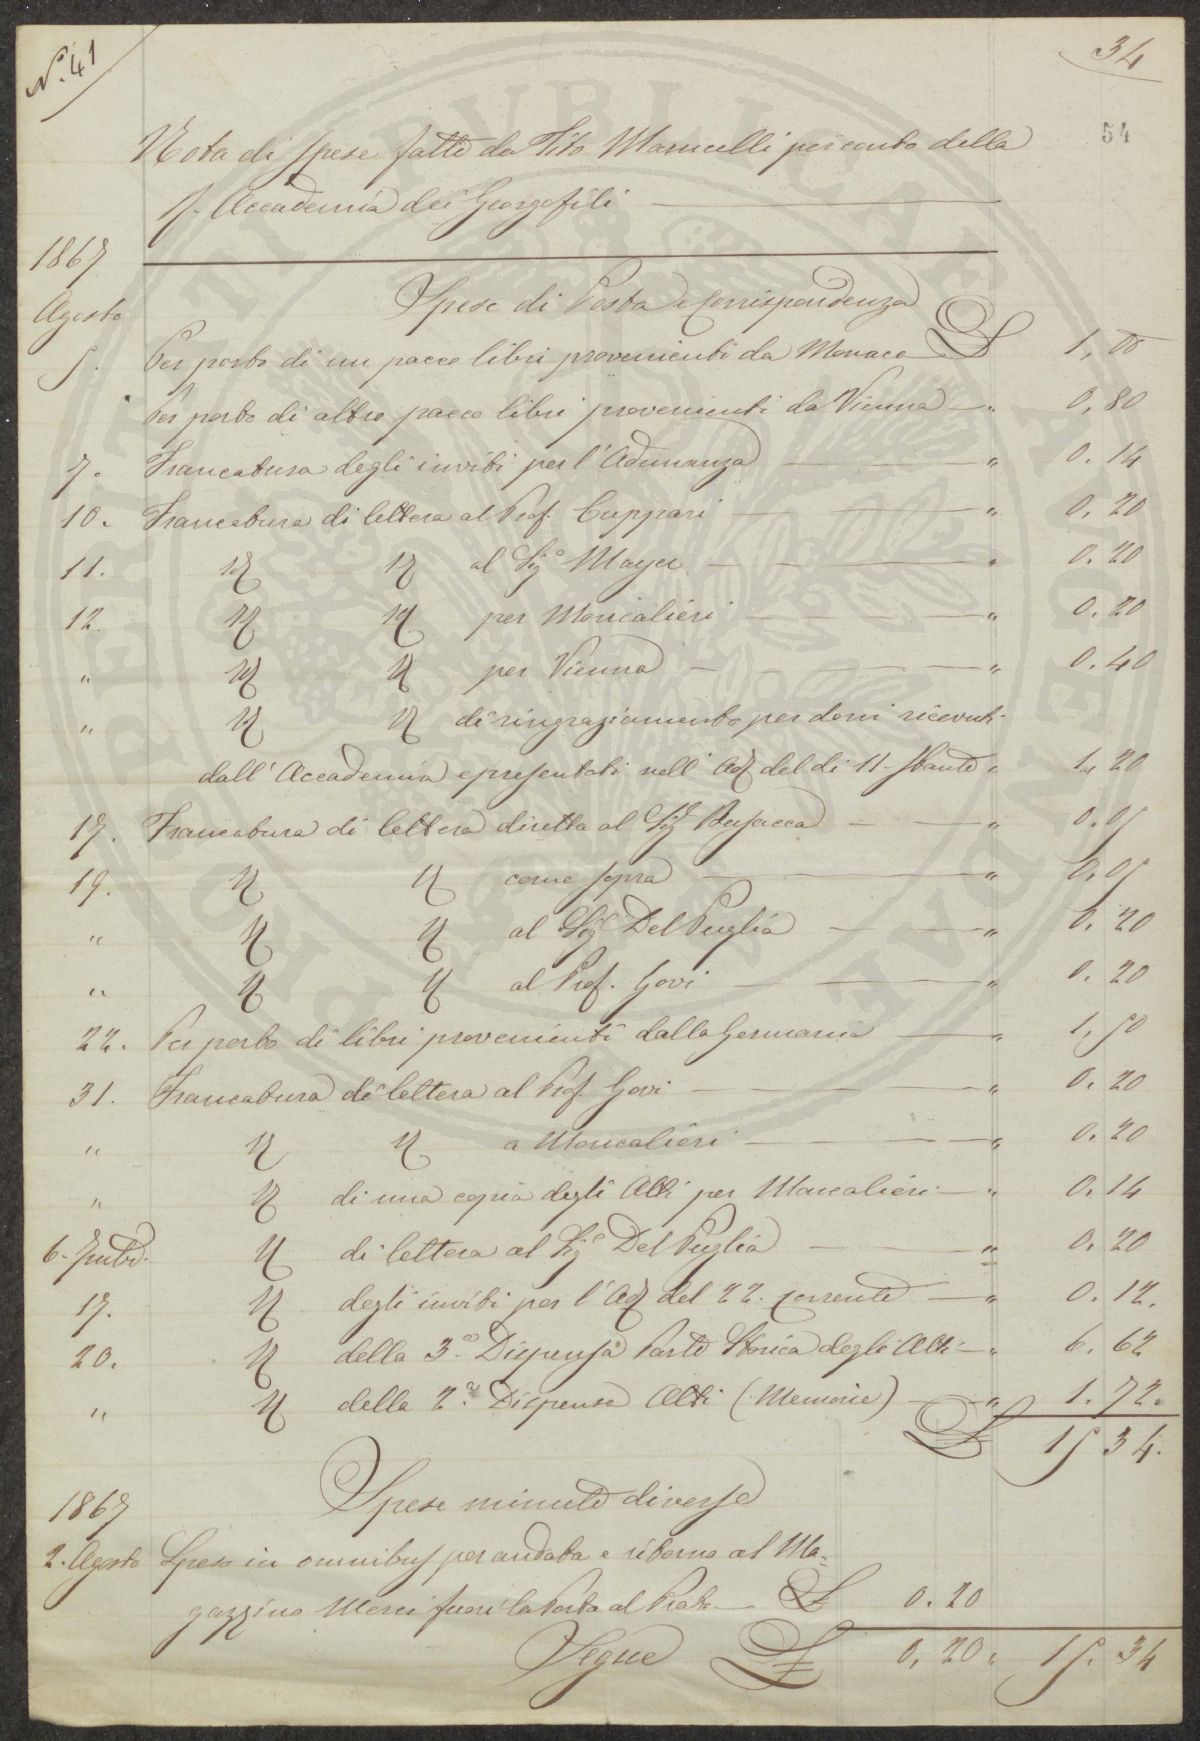 N.° 41
34
54
Nota di Spese fatte da Tito Marucelli per conto della
R. Accademia dei Georgofili
1867
Agosto
Spese di Posta e Corrispondenza
5. Per porto di un pacco libri provenienti da Monaco £ 1,00
" Per porto di altro pacco libri provenienti da Vienna " 0,80
7. Francatura degli inviti per l'Adunanza " 0.14
10. Francatura di lettera al Prof. Cuppari " 0.20
11. " " al Sig.e Mayer " 0.20
12. " " per Moncalieri " 0.20
" " " per Vienna " 0.40
" " " di ringraziamento per doni ricevuti
dall' Accademia e presentati nell' Ad. del di 11 Stante " 1.20
17. Francatura di lettera diretta al Sig.e Busacca " 0.05
19. " " come sopra " 0.05
" " " al Sig.e Del Puglia " 0.20
" " " al Prof. Govi " 0.20
22. Per porto di libri provenienti dalla Germania " 1,50
31. Francatura di lettera al Prof. Govi " 0.20
" " " a Moncalieri " 0.20
" " di una copia degli Atti per Moncalieri " 0.14
6. Settbe. " di lettera al Sig.e Del Puglia " 0.20
17. " degli inviti per l'Ad. del 22. corrente " 0.12.
20. " della 3.a Dispensa Parte Storica degli Atti " 6.62
" " della 2.a Dispensa Atti (Memorie) " 1.72.
£ 15 34.
1867
Spese minute diverse
2. Agosto Spesa in omnibus per andata e ritorno al Ma=
gazzino Merci fuori la Porta al Prato £ 0.20
Segue £ 0,20 " 15.34
PROSPERITATI PUBLICAE AUGENDAE